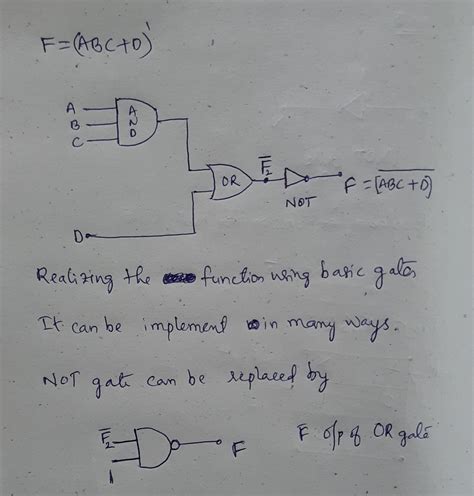 F = (ABC+D)'
A
B
C
AND
OR
F̅₂
NOT
F = [A̅B̅C̅ ̅+̅ ̅D̅]
D
Realizing the function using basic gates
It can be implement in many ways.
NOT gate can be replaced by
F̅₂
1
F
F̅ o/p of OR gate